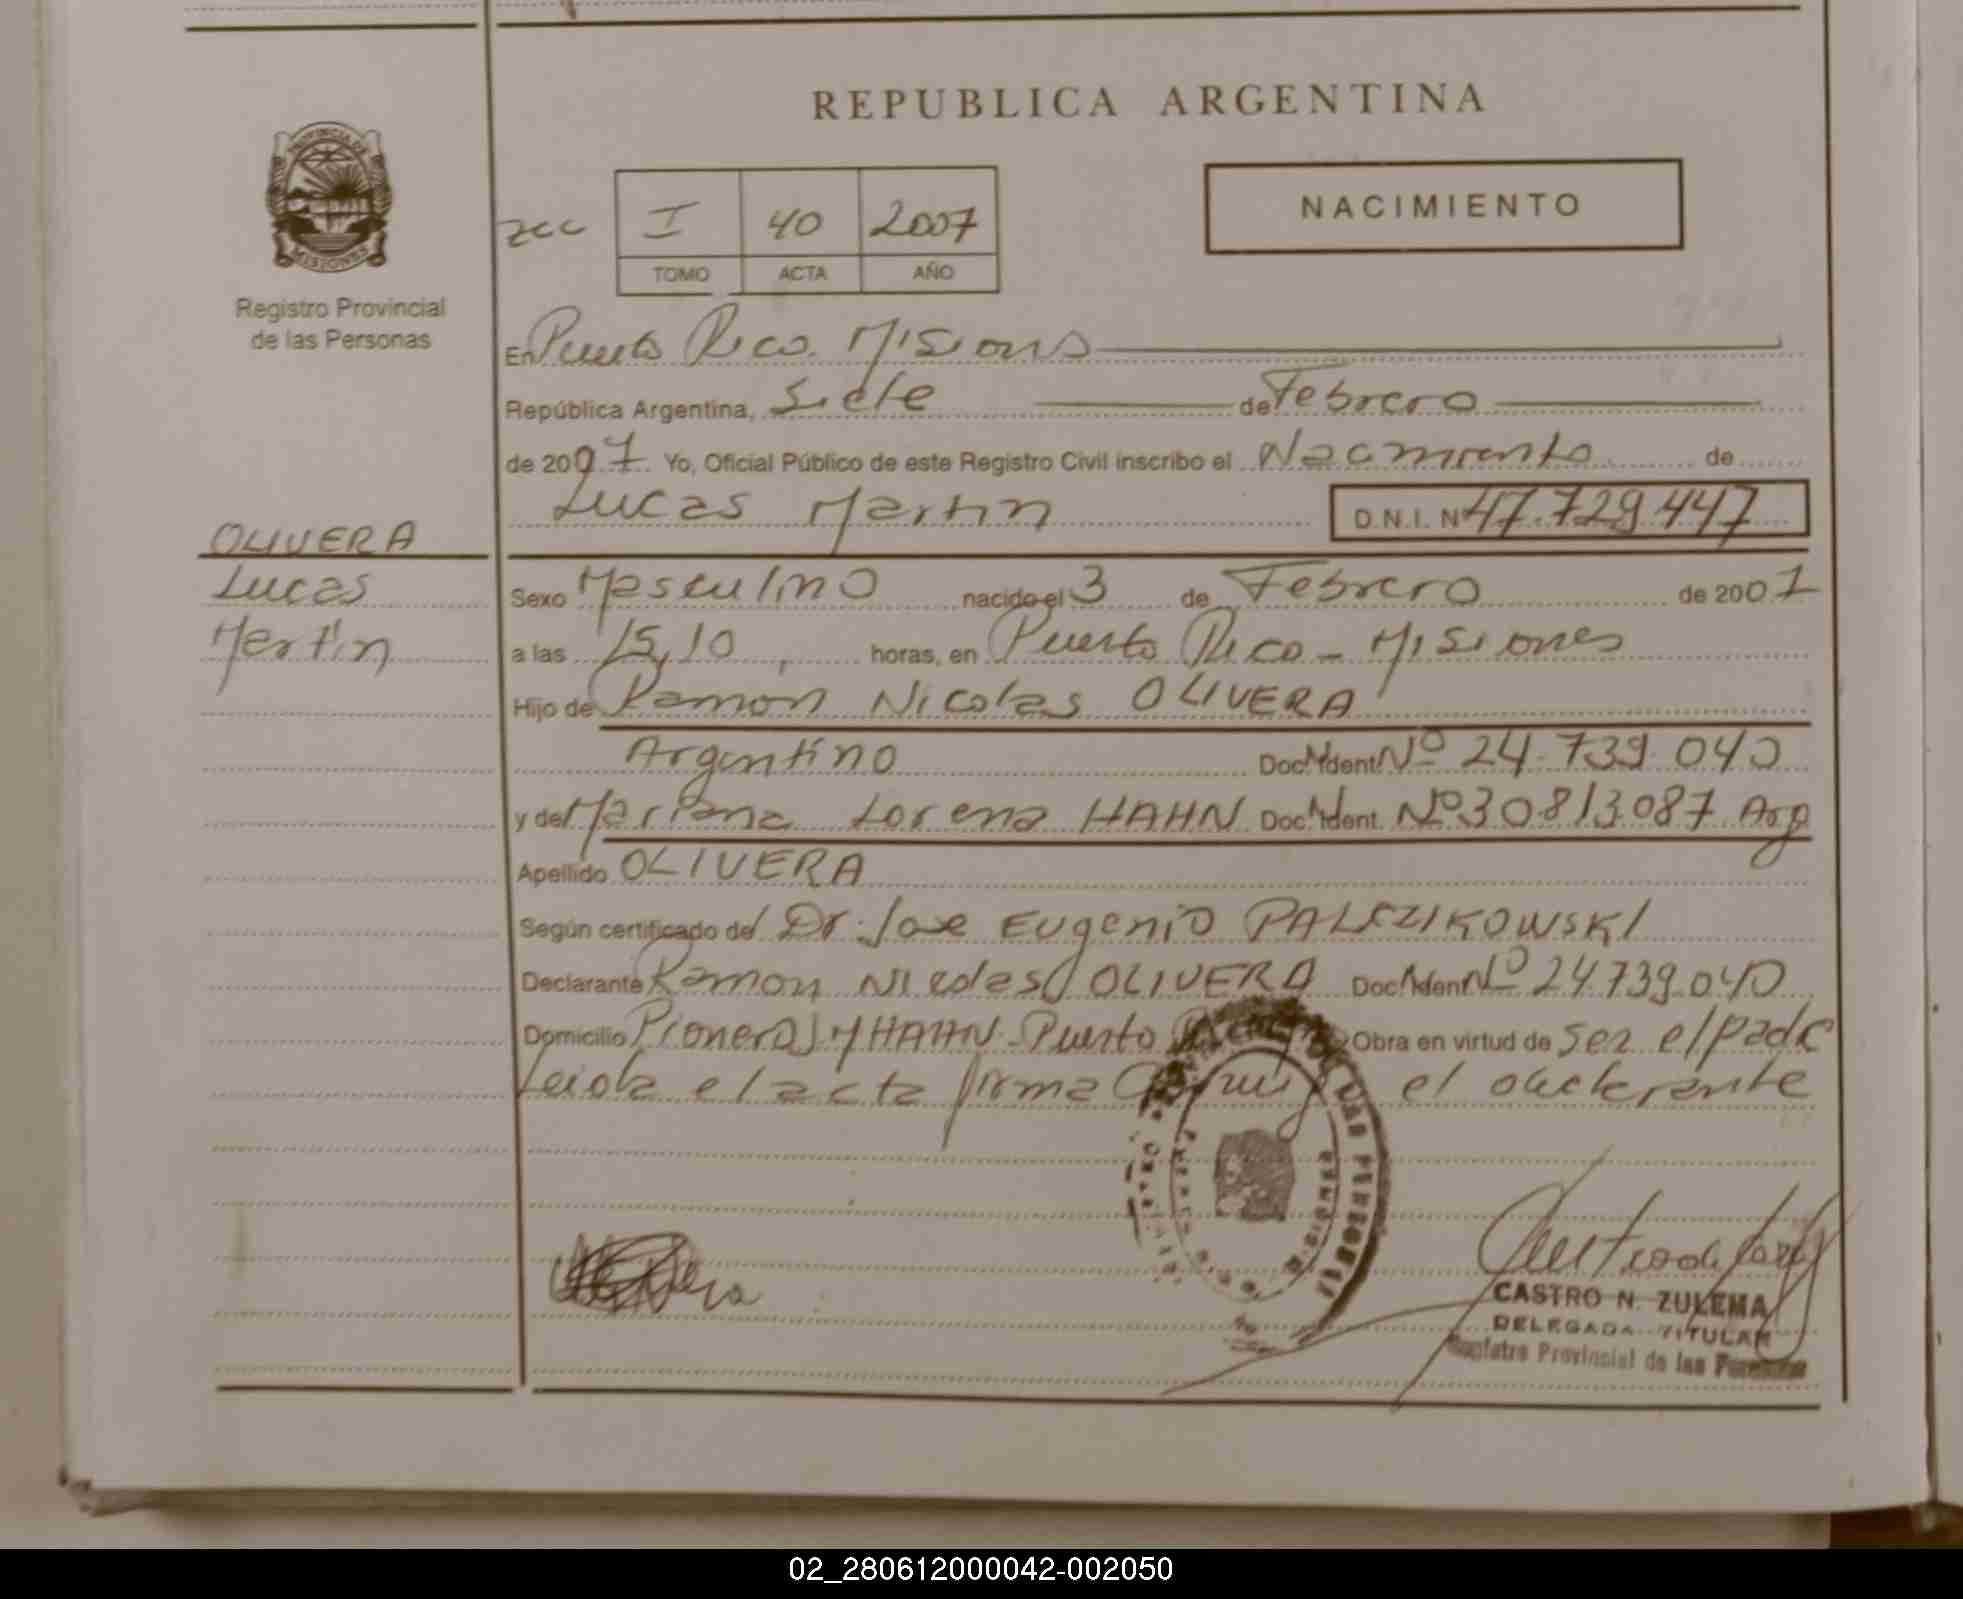 REPUBLICA ARGENTINA
PROVINCIA DE
MISIONES
Registro Provincial
de las Personas
I 40 2007
TOMO ACTA AÑO
NACIMIENTO
En Puerto Rico. Misiones
República Argentina, Siete de Febrero
de 2007 Yo, Oficial Público de este Registro Civil inscribo el Nacimiento de
Lucas Martin D.N.I. Nº 47.729.447
OLIVERA
Lucas
Martín
Sexo Masculino nacido el 3 de Febrero de 2007
a las 15,10 horas, en Puerto Rico - Misiones
Hijo de Ramon Nicolas OLIVERA
Argentino Doc. Ident. Nº 24.739.040
y de Mariana Lorena HAHN Doc. Ident. Nº 30813.087 Arg
Apellido OLIVERA
Según certificado del Dr. Jose Eugenio PALCZIKOWSKI
Declarante Ramon Nicolas OLIVERA Doc. Ident. Nº 24.739.040
Domicilio Pioneros y HAHN - Puerto Obra en virtud de ser el padre
Leida el acta firma el declarante
CASTRO N. ZULEMA
DELEGADA TITULAR
Registro Provincial de las Personas
02_280612000042-002050